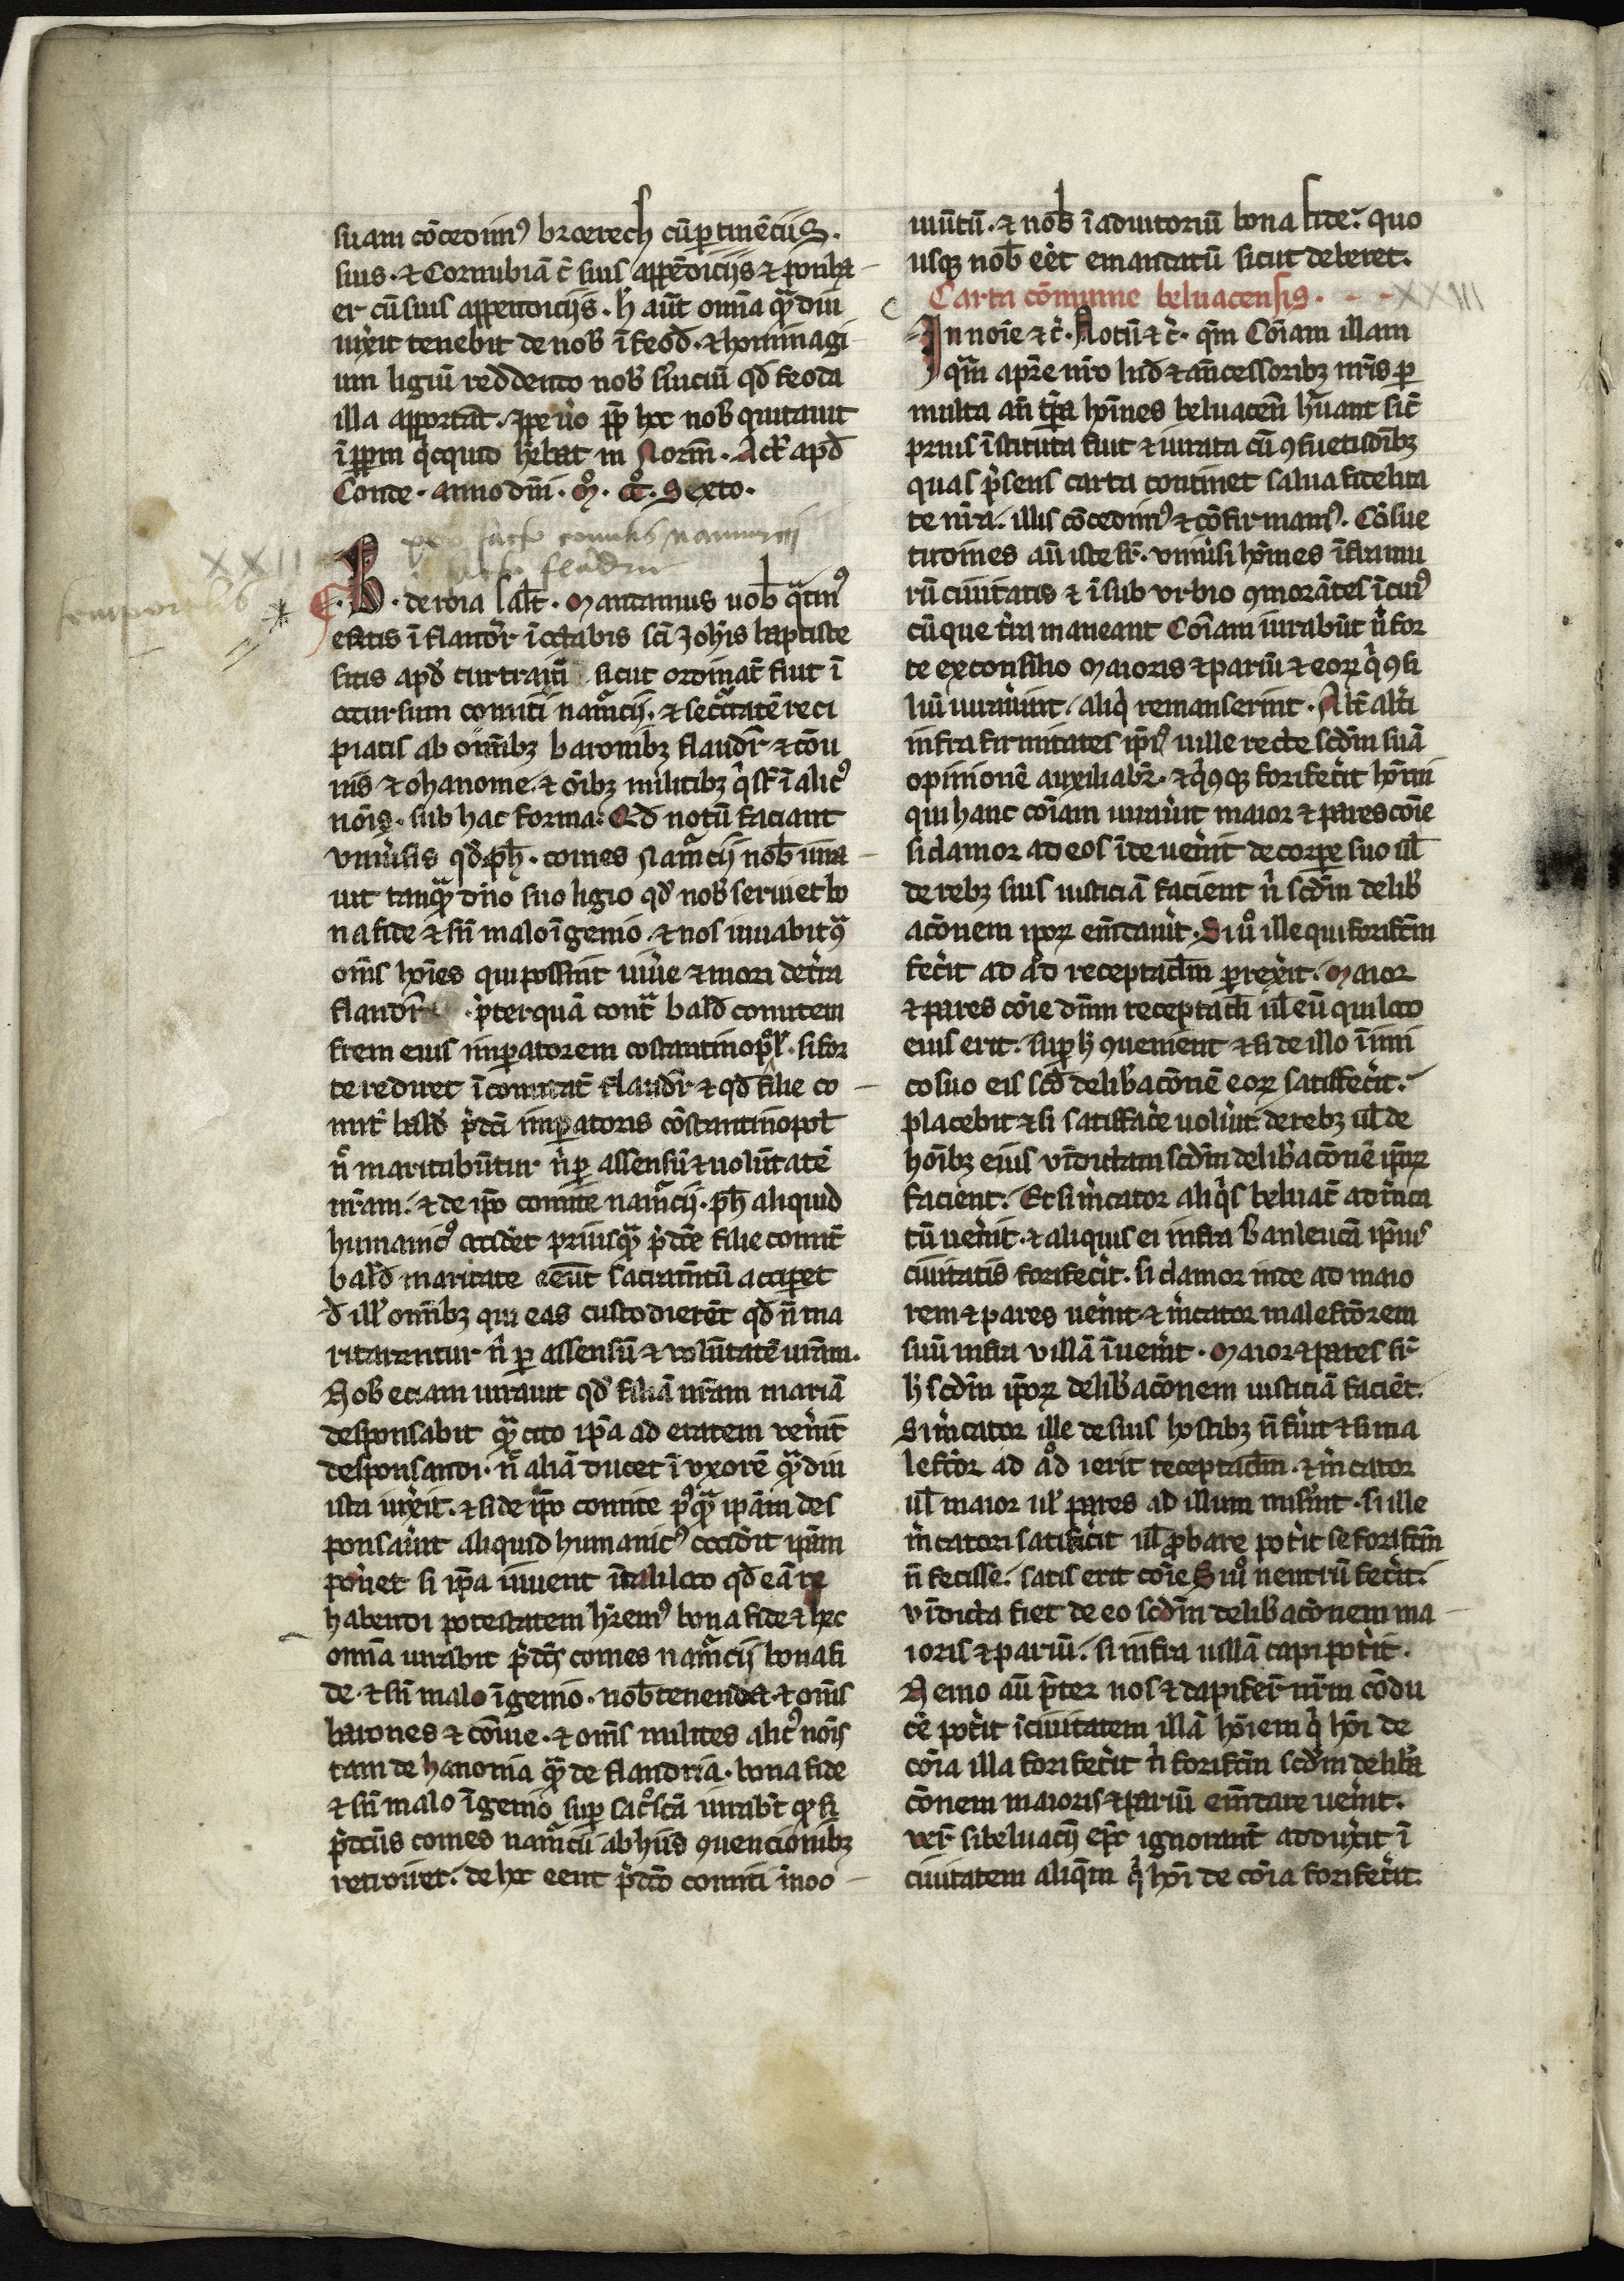 suam cōcedim⁹ brocrech cū ꝑtinēciis.
suis · ⁊ Cornubiā c̄ suis appēdiciis ⁊
er cū suis appendiciis · h̄ aūt om̄ia qᵃ̄diu
uixͥit tenebit de nob̄ ī feod̄ · ⁊ hominagi
um ligiū reddendo nob̄ sͥuiciū qd̄ feoda
illa apportāt · Ipe ůo ꝓp̄ hoc nob̄ quitauit
ī ꝑpm qͥcquid hēbat in Norm̄ · Act̄ apd̄
Conde · anno dn̄i · Mͦ · CCͦ · Sexto ·
comitis namurcii
fladrie
XXII
B · de roia sal̄t · Mandamus uob̄ qᵃtin⁹
eatis ī flandr̄ ī octabis sc̄i Joh̄is baptiste
sitis apd̄ curtracū sicut ordinat̄ fuit ī
occursum comiti namᵃcii · ⁊ secᵃitatē reci
piatis ab om̄ibꝫ baronibꝫ flandr̄ ⁊ cōu
nis · ⁊ ohanonie · ⁊ oībꝫ militibꝫ qͥ st̄ ī alic⁹
nōis · sub hac forma · Qd̄ notū faciant
vniůsis qd̄ ph̄ · comes Namᵃcii nob̄ iura
uit tanqᵃ̄ dn̄o suo ligio qd̄ nob̄ seruiet bo
na fide ⁊ sn̄ malo īgenio · ⁊ nos iuuabit 9ᵃ
om̄s hoīes qui possint uiůe ⁊ mori de tͥra
flandr̄ · pͥterquā contᵃ bald̄ comitem
frem eius imꝑatorem costantinopol̄ · si for
te rediret ī comitat̄ flandr̄ ⁊ qd̄ filie co
mit̄ bald̄ pͥdc̄i imꝑatoris cōstantinopol̄
n̄ maritabūtur nͥ ꝑ assensū ⁊ uolūtatē
nr̄am · ⁊ de ip̄o comite namᵃcii · ph̄ aliquid
humanit⁹ accidet̄ priusqᵃ̄ pͥdc̄e filie comit̄
bald̄ maritate eēnt sacramn̄tū acciꝑet
d̄ ill̄ om̄ibꝫ qui eas custodierēt qd̄ n̄ ma
ritarentur nͥ ꝑ assensū ⁊ volūtatē nr̄am ·
Nob̄ eciam iurauit qd̄ filiā nr̄am mariā
desponsabit qᵃ̄ cito ip̄a ad etatem venͥit
desponsandi · n̄ aliā ducet ī vxorē qᵃ̄diu
ista uixͥit · ⁊ si de ip̄o comite p⁹qᵃ̄ ip̄am des
ponsaůit aliquid humanit⁹ accidͥit ip̄am
ponet si ip̄a iuuent ī tali loco qd̄ eā re
habendi potestatem hr̄em⁹ bona fide ⁊ hec
om̄ia iurabit pͥdc̄s comes namᵃcii bona fi
de · ⁊ sn̄ malo īgenio · nob̄ tenenda · ⁊ om̄s
barones ⁊ cōmue · ⁊ om̄s milites alic⁹ nōis
tam de hanonia qᵃ̄ de flandria · bona fide
⁊ sn̄ malo īgenio suꝑ sacᵒsc̄a iurab̄t qd̄ si
pͥdc̄us comes namᵃcii ab hiis 9uencionibꝫ
resiliret · de hoc eent pͥdc̄o comiti ī noc
uum̄tū · ⁊ nob̄ ī adiutoriū bona fide · quo
usqꝫ nob̄ eēt emandatū sicut deberet ·
Carta cōmunie beluacensis · XXIII
In noīe ⁊ c̄ · Notū ⁊ c̄ · qm̄ Cōiam illam
qᵃm a pr̄e nr̄o lud̄ ⁊ an̄cessoribꝫ nr̄is ꝑ
multa an̄ tp̄ra hoīnes beluacen̄ hͥuant sic̄
prius īstituta fuit ⁊ iurata cū 9suetudībꝫ
quas pͥsens carta continet salua fidelita
te nr̄a · illis cōcedim⁹ ⁊ cōfirmam⁹ · Cōsue
tudines aū iste st̄ · vniůsi hoīnes ī fra mu
rū ciuitatis ⁊ ī sub vrbio 9morātes ī cui⁹
cūque tͥra maneant Cōiam iurabūt nͥ for
te ex consilio maioris ⁊ pariū ⁊ eoꝝ qͥ 9si
liū iuraůint · aliqͥ remanserint · Alt̄ altͥi
infra firmitates ip̄i⁹ uille recte scd̄m suā
opinionē auxiliabr̄ · ⁊ qͥ9qꝫ forifecͥit hoīni
qui hanc cōiam iuraůit maior ⁊ pares cōie
si clamor ad eos īde uenͥit de corꝑe suo ul̄
de rebꝫ suis iusticiā facient nͥ scd̄m delib̄
acōnem ipoꝝ emēdauͥit · Si uͦ ille qui forifc̄m
fecͥit ad aͦd receptacl̄m ꝑrexͥit · maior
⁊ pares cōie dn̄m receptacl̄i ul̄ eū qui loco
eius erit · suꝑ h̄ 9uenient ⁊ si de illo īimi
co suo eis scd̄ delib̄acōnē eoꝝ satisfecͥit ·
placebit ⁊ si satisfacͥe uolūit de rebꝫ ul̄ de
hoībꝫ eius vīdictam scd̄m delib̄acōnē ip̄oꝝ
facient · Et si mͥcator aliqͥs beluac̄ ad mͥca
tū uenͥit · ⁊ aliquis ei infra banleucā ip̄ius
ciuitatis forifecͥit · si clamor inde ad maio
rem ⁊ pares uenͥit ⁊ mͥcator malefc̄orem
suū infra villā īuenͥit · maior ⁊ pares sr̄
h̄ scd̄m ip̄oꝝ delib̄acōnem iusticiā faciēt ·
Si mͥcator ille de suis hostibꝫ n̄ fuͥit ⁊ si ma
lefc̄or ad aͦd ierit receptacl̄m · ⁊ mͥcator
ul̄ maior ul̄ pares ad illum misͥint · si ille
mͥcatori satisfecͥit ul̄ ꝓbare potͥit se forifc̄m
n̄ fecisse · satis erit cōie Si uͦ neutrū fecͥit ·
vīdicta fiet de eo scd̄m delib̄acōnem ma
ioris ⁊ pariū · si infra uillā capi potͥit ·
Nemo aū pͥter nos ⁊ dapifer̄ nr̄m cōdu
cͥe potͥit ī ciuitatem illā hoīem qͥ hoī de
cōia illa forifecͥit nͥ forifc̄m scd̄m delib̄a
cōnem maioris ⁊ pariū emēdare uenͥit ·
ver̄ si beluacn̄ ep̄c ignorant̄ adduxͥit ī
ciuitatem aliqͥm qͥ hoī de cōia forifecͥit ·